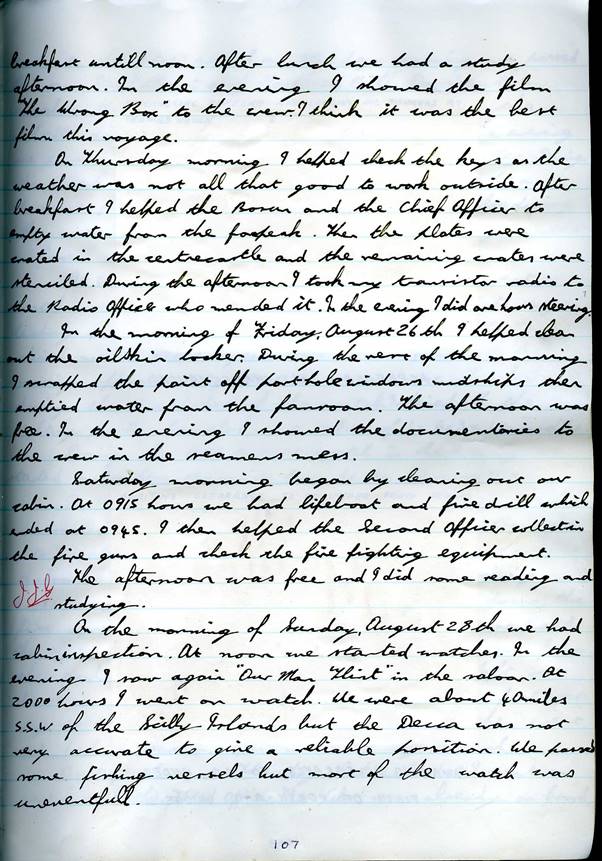 breakfast untill noon. After lunch we had a study
afternoon. In the evening I showed the film
"The Wrong Box" to the crew. I think it was the best
film this voyage.
On Thursday morning I helped check the keys as the
weather was not all that good to work outside. After
breakfast I helped the Bosun and the Chief Officer to
empty water from the foxpeak. Then the slates were
crated in the centrecastle and the remaining crates were
stenciled. During the afternoon I took my transistor radio to
the Radio Officer who mended it. In the evening I did one hours steering.
In the morning of Friday, August 26th I helped clean
out the oilskin locker. During the rest of the morning
I scrapped the paint off porthole windows midships then
emptied water from the fanroom. The afternoon was
free. In the evening I showed the documentaries to
the crew in the seamens mess.
Saturday morning began by clearing out our
cabin. At 0915 hours we had lifeboat and fire drill which
ended at 0945. I then helped the Second Officer collect in
the fire guns and check the fire fighting equipment.
The afternoon was free and I did some reading and
studying.
On the morning of Sunday, August 28th we had
cabin inspection. At noon we started watches. In the
evening I saw again "Our Man Flint" in the saloon. At
2000 hours I went on watch. We were about 40 miles
S.S.W of the Scilly Islands but the Decca was not
very accurate to give a reliable position. We passed
some fishing vessels but most of the watch was
uneventfull.
107